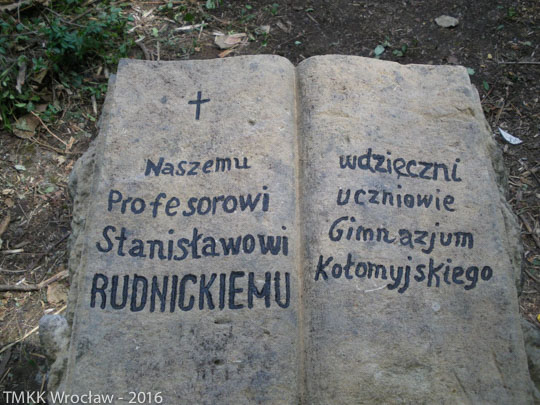 Naszemu
Profesorowi
Stanisławowi
RUDNICKIEMU
wdzięczni
uczniowie
Gimnazjum
Kołomyjskiego
TMKK Wrocław - 2016